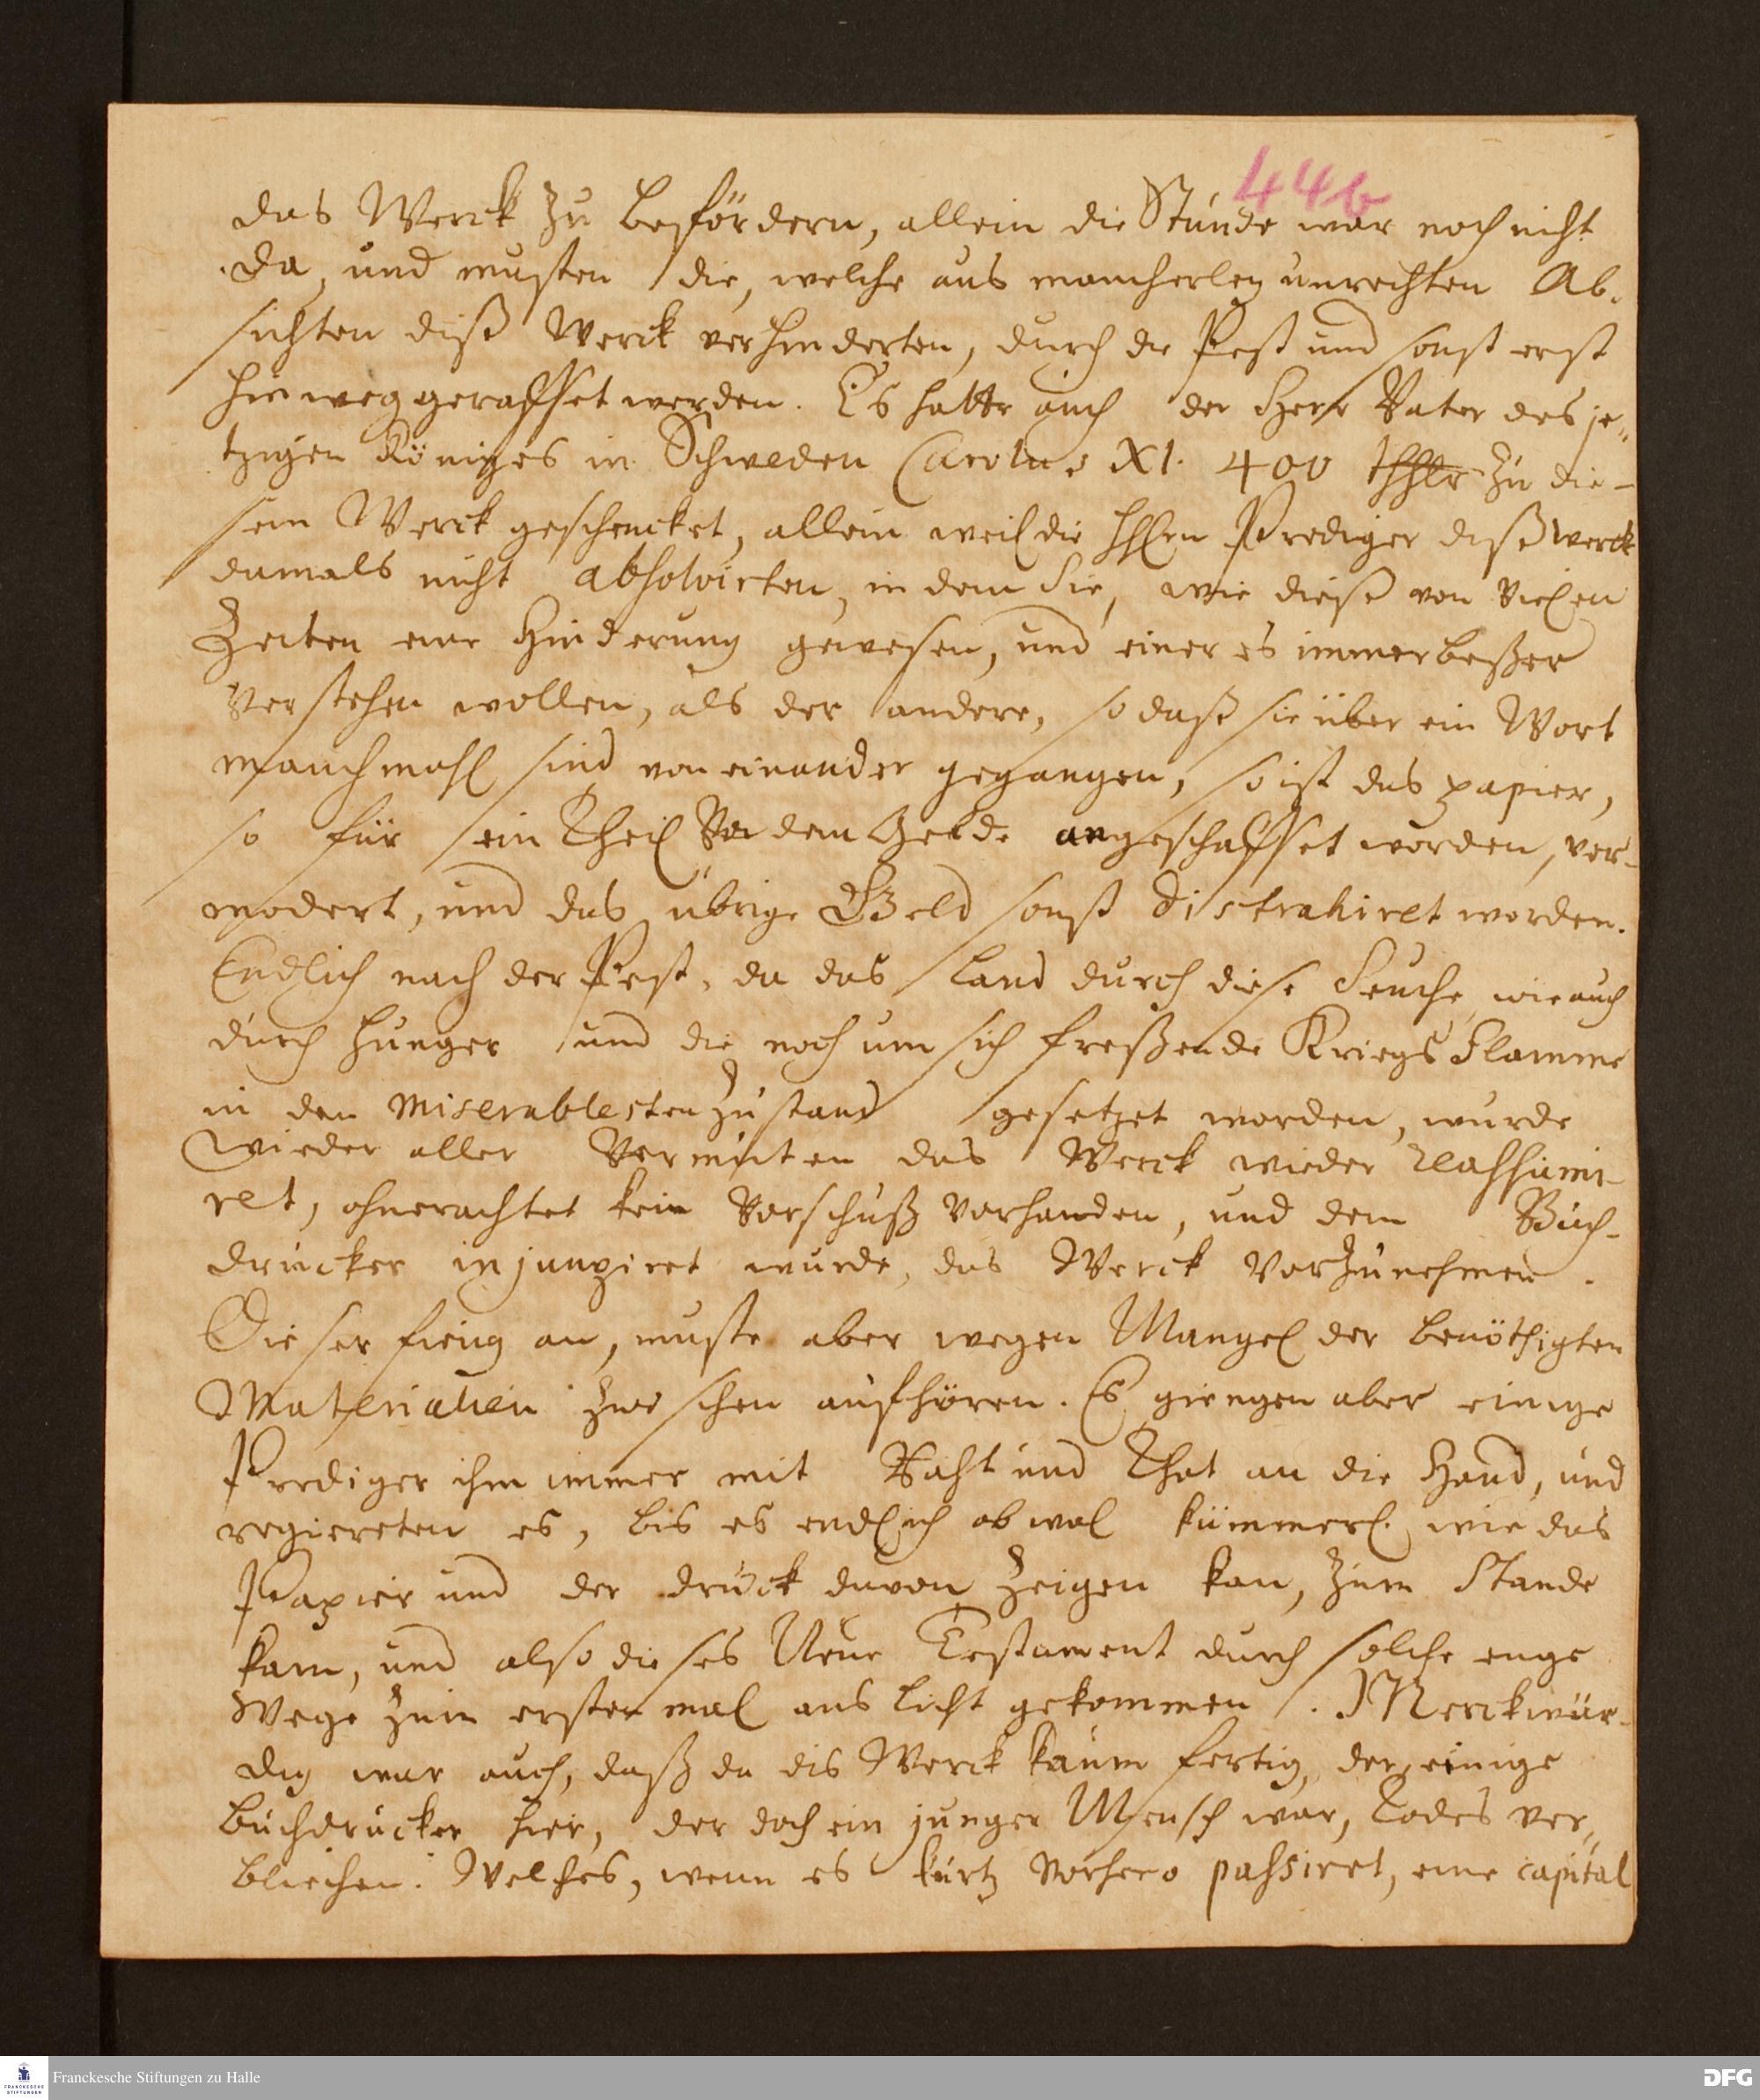 44b
das Werck zu befördern, allein die Stunde war noch nicht
da, und musten die, welche aus mancherley unrechten Ab-
sichten diß Werck verhinderten, durch die Pest und sonst erst
hinweggeraffet werden. Es hatte auch der Herr Vater des je-
tzigen Königes in Schweden Carolus XI. 400 Thlr zu die-
sem Werck geschencket, allein weil die HhErn Prediger diß werck
damals nicht absolvirten, in dem Sie, wie dieses von Vielen
Zeiten eine Hinderung gewesen, und einer es immer beßer
verstehen wollen, als der andere, so daß sie über ein Wort
manchmahl sind von einander gegangen, so ist das papier,
so für sein Theil Von dem Gelde angeschaffet worden, ver-
modert, und das übrige Geld sonst distrahiret worden.
Endlich nach der Pest, da das Land durch diese Seuche, wie auch
durch Hunger und die noch um sich freßende Kriegs Flamme
in den miserablesten Zustand gesetzet worden, wurde
wieder aller Vermuten das Werck wieder reassumi-
ret, ohnerachtet kein Vorschuß vorhanden, und dem Buch-
drucker injungiret wurde, das Werck vorzunehmen.
Dieser fieng an, muste aber wegen Mangel der benöthigten
Materialien zwischen aufhören. Es giengen aber einige
Prediger ihm immer mit Raht und That an die Hand, und
regiereten es, bis es endlich obwol kümmerl. wie das
Papier und der druck davon zeigen kan, zum Stande
kam, und also dieses Neue Testament durch solche enge
Wege zum ersten mal ans Licht gekommen. Merckwür-
dig war auch, daß da dis Werck kaum fertig, der einige
Buchdrucker hier, der doch ein junger Mensch war, Todes ver-
blichen. Welches, wenn es kurtz vorhero passiret, eine capital
Franckesche Stiftungen zu Halle
DFG